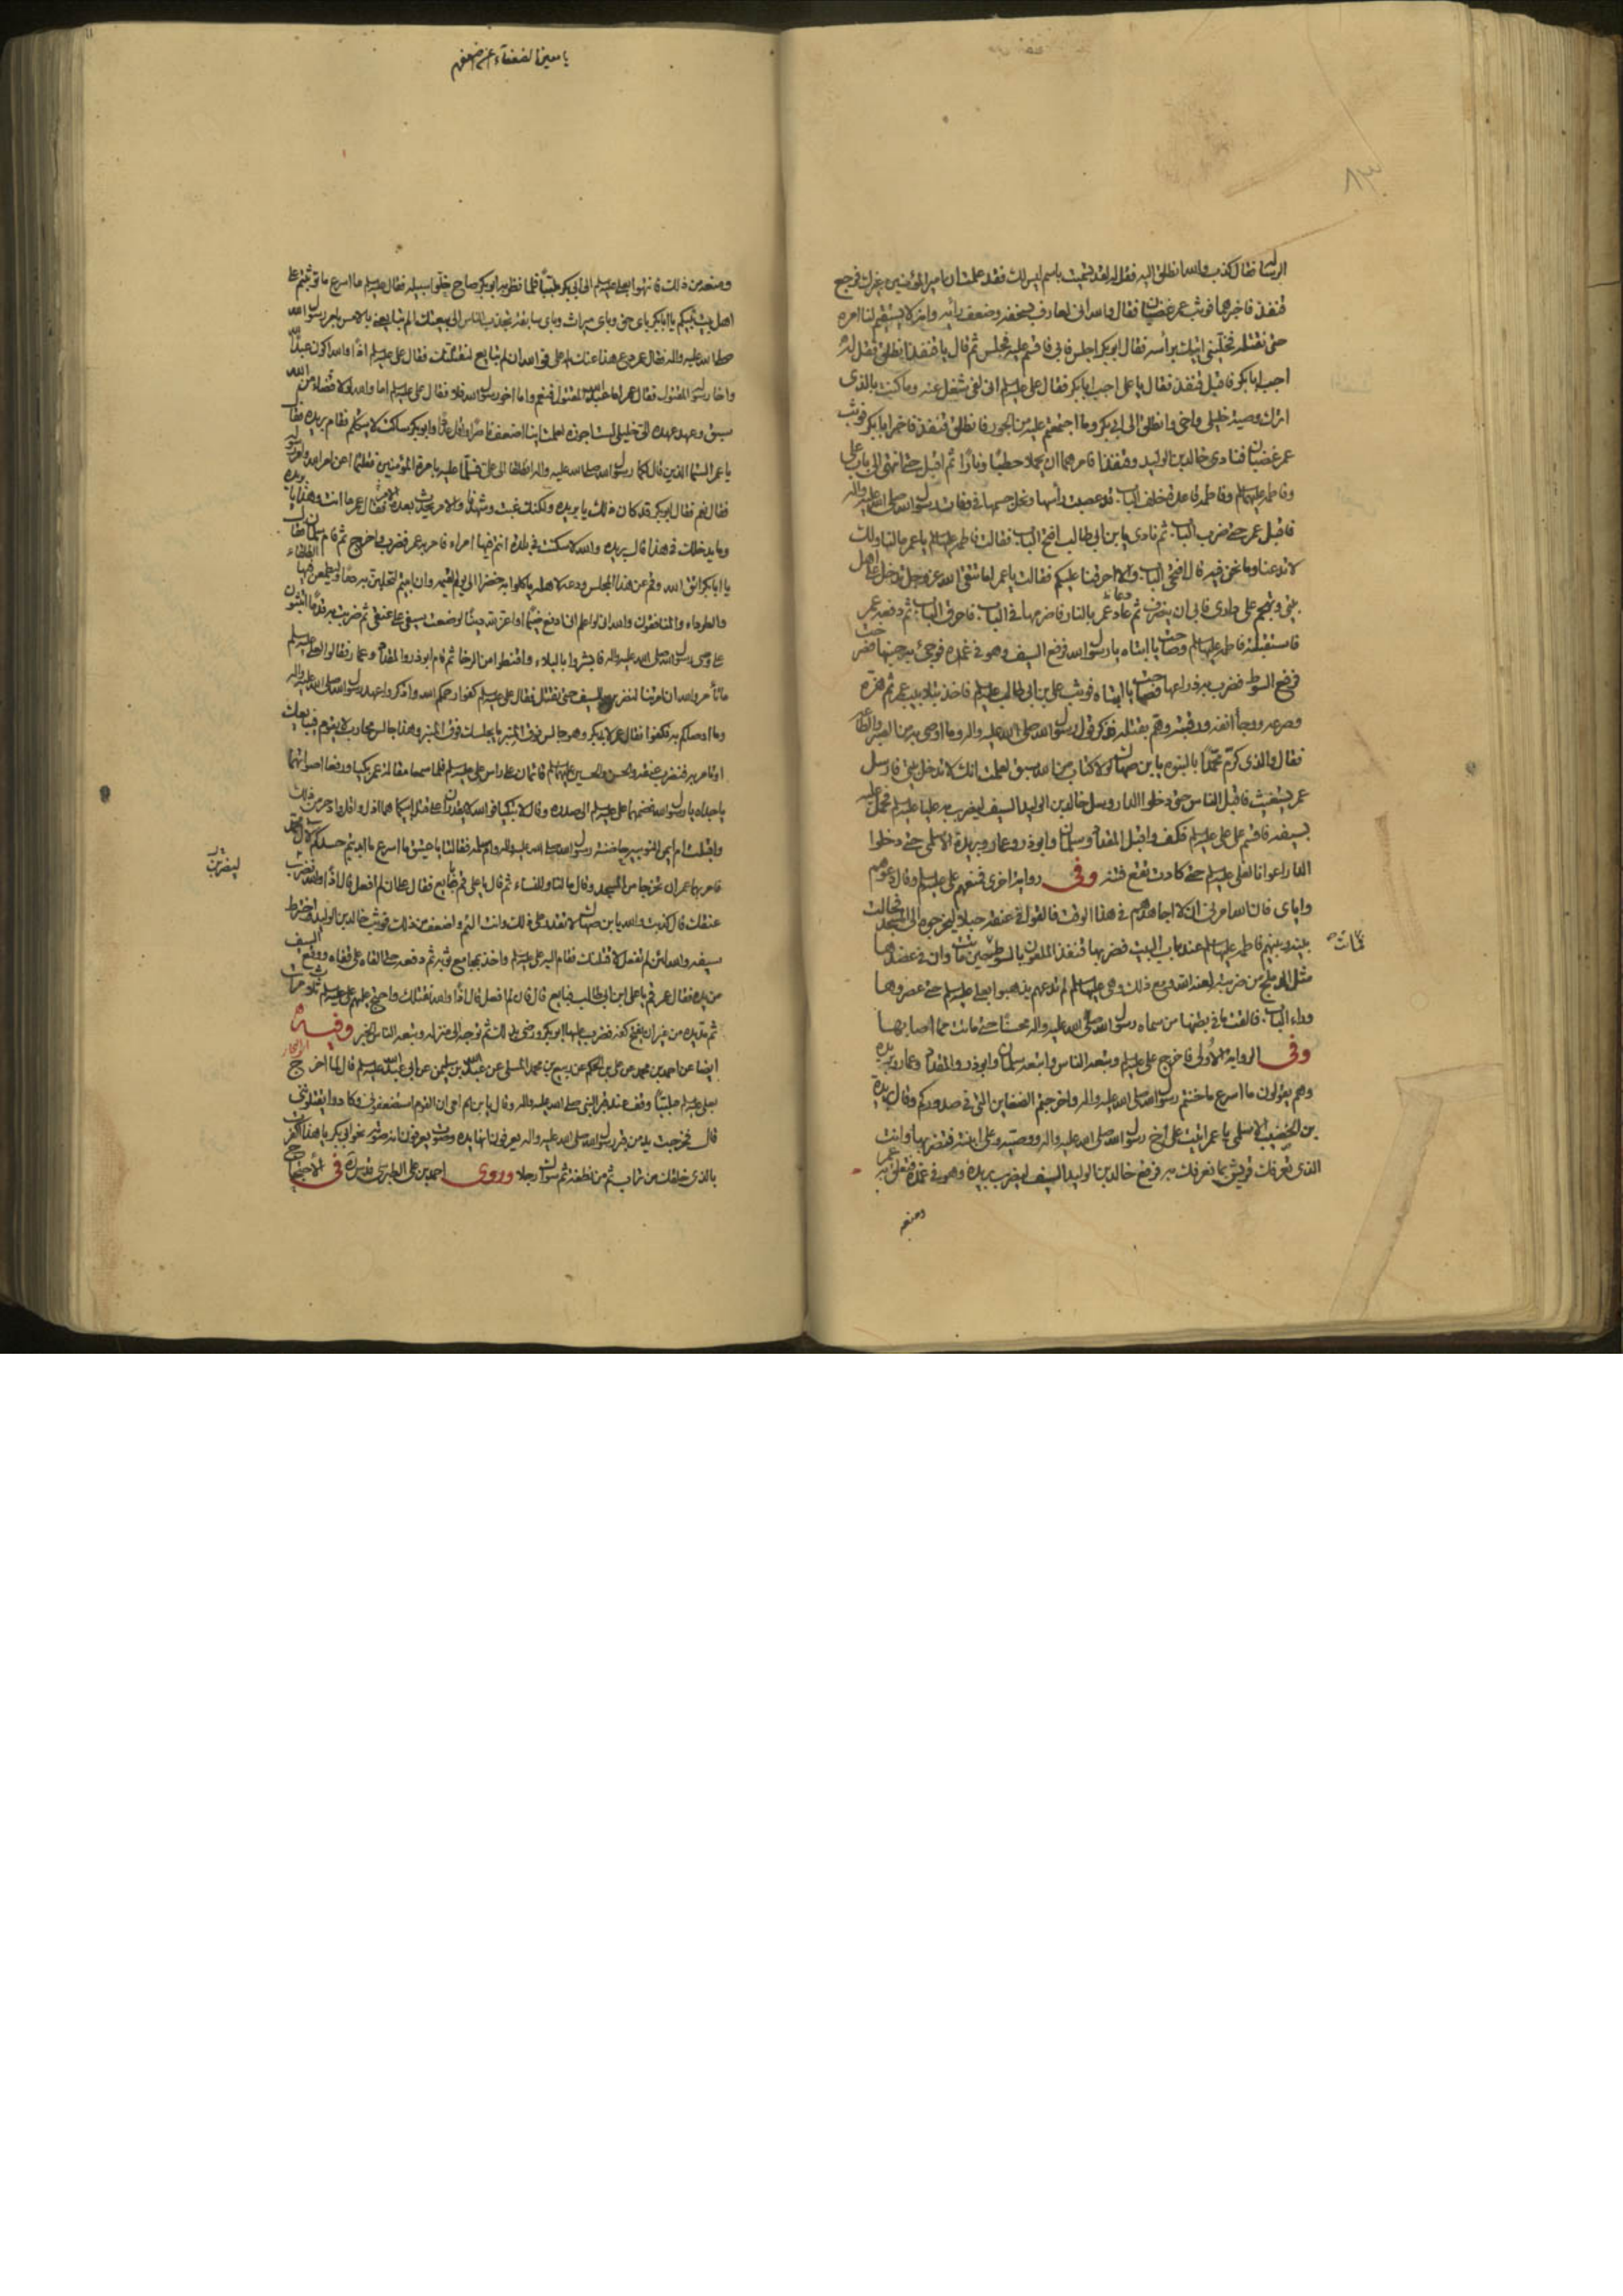 الرسا فقال كذب والله انطلق اليه فقل له لقد تسميت باسم ليس لك فقد علمت ان امير المؤمنين غيرك فرجع
قنفذ فاخبرهما فوثب عمر غضبان فقال والله انى لعارف بسخفه وضعف رأيه وانه لا يستقيم لنا امره
حتى نقتله فخلني اتيك برأسه فقال ابو بكر اجلس فابى فاقسم عليه فجلس ثم قال يا قنفذ انطلق فقل له
اجب ابا بكر فاقبل قنفذ فقال يا على اجب ابا بكر فقال على عليه السلم انى لفى شغل عنه وما كنت بالذى
اترك وصية خليلى واخى وانطلق الى ابى بكر وما اجتمعتم عليه من الجور فانطلق قنفذ فاخبر ابا بكر فوثب
عمر غضبان فنادى خالد بن الوليد وقنفذا فامرهما ان يحملا حطبا ونارا ثم اقبل حتى انتهى الى باب على
وفاطمه عليهما السلم وفاطمه قاعدة خلف الباب قد عصبت رأسها ونحل جسمها فى وفات رسول الله صلى الله عليه واله
فاقبل عمر حتى ضرب الباب ثم نادى يا بن ابى طالب افتح الباب فقالت فاطمه عليها السلم يا عمر ما لنا ولك
لا تدعنا وما نحن فيه قال افتحى الباب والا احرقنا عليكم فقالت يا عمر اما تتقى الله عز وجل تدخل على
بيتى وتهجم على دارى فابى ان ينصرف ثم عاد عمر بالنار فاضرمها فى الباب فاحرق الباب ثم دفعه عمر
فاستقبلته فاطمه عليها السلم وصاحت يا ابتاه يا رسول الله فرفع السيف وهو فى غمده فوجئ به جنبها
فرفع السوط فضرب به ذراعها فصاحت يا ابتاه فوثب على بن ابى طالب عليه السلم فاخذ بتلابيب عمر ثم هزه
وصرعه ووجأ انفه ورقبته وهم بقتله فذكر قول رسول الله صلى الله عليه واله وما اوصى به من الصبر والطاعه
فقال والذى كرم محمدا بالنبوه يا بن صهاك لولا كتاب من الله سبق لعلمت انك لا تدخل بيتى فارسل
عمر يستغيث فاقبل الناس حتى دخلوا الدار وسل خالد بن الوليد السيف ليضرب به عليا عليه السلم فحمل عليه
بسيفه فاقسم على على عليه السلم فكف واقبل المقداد وسلمان وابو ذر وعمار وبريدة الاسلمى حتى دخلوا
الدار اعوانا لعلى عليه السلم حتى كادت تقع فتنه وفى رواية اخرى فمنعهم على عليه السلم وقال دعوهم
واياى فان الله امرنى ان لا اجاهدهم فى هذا الوقت فالقوا فى عنقه حبلا ليخرجوه الى المسجد فحالت
بينه وبينهم فاطمه عليها السلم عند باب البيت فضربها قنفذ الملعون بالسوط فماتت حين ماتت وان فى عضدها
مثل الدملج من ضربته لعنه الله ومع ذلك وهى عليها السلم لم تدعهم يذهبوا بعلى عليه السلم حتى عصروها
وراء الباب فالقت ما فى بطنها من سماه رسول الله صلى الله عليه واله محسنا حتى ماتت مما اصابها
وفى الرواية الاولى فاخرج على عليه السلم وتبعه الناس واتبعه سلمان وابو ذر والمقداد وعمار وبريده
وهم يقولون ما اسرع ما خنتم رسول الله صلى الله عليه واله واخرجتم الضغاين التى فى صدوركم وقال بريدة
بن الخصيب الاسلمى يا عمر اتيت على اخ رسول الله صلى الله عليه واله ووصيه وعلى ابنته فتضربها وانت
الذى تعرفك قريش بما تعرفك به فرفع خالد بن الوليد السيف ليضرب بريده وهو فى غمده فتعلق به عمر
ومنعه
يا معين الضعفاء
ومنعه من ذلك فانتهوا بعلى عليه السلم الى ابى بكر ملببا فلما نظر به ابو بكر صاح خلوا سبيله فقال عليه السلم ما اسرع ما توثبتم على
اهل بيت نبيكم يا ابا بكر باى حق وباى ميراث وباى سابقة تحث الناس الى بيعتك الم تبايعنى بالامس بامر رسول الله
صلى الله عليه واله فقال عمر دع هذا عنك يا على فو الله ان لم تبايع لنقتلنك فقال على عليه السلم اذا والله اكون عبد الله
واخا رسول الله المقتول فقال عمر اما عبد الله المقتول فنعم واما اخو رسول الله فلا فقال على عليه السلم اما والله لولا قضاء من الله
سبق وعهد عهده الى خليلى لست اجوزه لعلمت اينا اضعف ناصرا واقل عددا وابو بكر ساكت لا يتكلم فقام بريده فقال
يا عمر الستما الذين قال لكما رسول الله صلى الله عليه واله انطلقا الى على فسلما عليه بامرة المؤمنين فقلتما اعن امر الله وامر رسوله
فقال نعم فقال ابو بكر قد كان ذلك يا بريده ولكنك غبت وشهدنا والامر يحدث بعده الامر فقال عمر ما انت وهذا يا بريده
وما يدخلك فى هذا قال بريده والله لا سكنت فى بلدة انتم فيها امراء فامر به عمر فضرب واخرج ثم قام سلمان فقال
يا ابا بكر اتق الله وقم عن هذا المجلس ودعه لاهله ياكلوا به خضرا الى يوم القيمه وان ابيتم لتحلبن به دما وليطمعن فيها
والطرداء والمنافقون والله لو اعلم انى ادفع ضيما او اعز لله دينا لوضعت سيفى على عنقى ثم ضربت به قدما اتثبون
على وصى رسول الله صلى الله عليه واله فابشروا بالبلاء واقنطوا من الرخا ثم قام ابو ذر والمقداد وعمار فقالوا لعلى عليه السلم
ما تأمر والله ان امرتنا لنضربن بالسيف حتى نقتل فقال على عليه السلم كفوا رحمكم الله واذكروا عهد رسول الله صلى الله عليه واله
وما اوصاكم به فكفوا فقال عمر لابى بكر وهو جالس فوق المنبر ما يجلسك فوق المنبر وهذا جالس محارب لا يقوم فيبايعك
او تامر به فنضرب عنقه والحسن والحسين عليهما السلم قائمان على راس على عليه السلم فلما سمعا مقالة عمر بكيا ورفعا اصواتهما
يا جداه يا رسول الله فضمهما على عليه السلم الى صدره وقال لا تبكيا فو الله لا يقدران على قتل ابيكما هما اذل وادخر من ذلك
واقبلت ام ايمن النوبيه حاضنة رسول الله صلى الله عليه واله وام سلمه فقالتا يا عتيق ما اسرع ما ابديتم حسدكم لال محمد
فامر بهما عمر ان تخرجا من المسجد وقال ما لنا وللنساء ثم قال يا على قم بايع فقال على ان لم افعل قال اذا والله نضرب
عنقك قال كذبت والله يا بن صهاك لا تقدر على ذلك وانت الئم واضعف من ذلك فوثب خالد بن الوليد واخترط
سيفه والله لئن لم تفعل لاقتلنك فقام اليه على عليه السلم واخذ بمجامع ثوبه ثم دفعه حتى القاه على قفاه ووقع السيف
من يده فقال عمر قم يا على ابن ابى طالب فبايع قال فان لم افعل قال اذا والله نقتلك واحتج عليهم على عليه السلم ثلاث مرات
ثم مد يده من غير ان يفتح كفه فضرب عليها ابو بكر ورضى بذلك ثم توجه الى منزله وتبعه الناس الخبر وفيه
ايضا عن احمد بن محمد عن على بن الحكم عن ربيع بن محمد المسلى عن عبد الله بن سليمن عن ابى عبد الله عليه السلم قال لما اخرج
بعلى عليه السلم ملببا وقف عند قبر النبى صلى الله عليه واله وقال يا بن ام ان القوم استضعفونى وكادوا يقتلوننى
قال فخرجت يد من قبر رسول الله صلى الله عليه واله يعرفون انها يده وصوت يعرفون انه صوته نحو ابى بكر يا هذا اكفرت
بالذى خلقك من تراب ثم من نطفة ثم سواك رجلا وروى احمد بن على الطبرسى قدس سره فى الاحتجاج